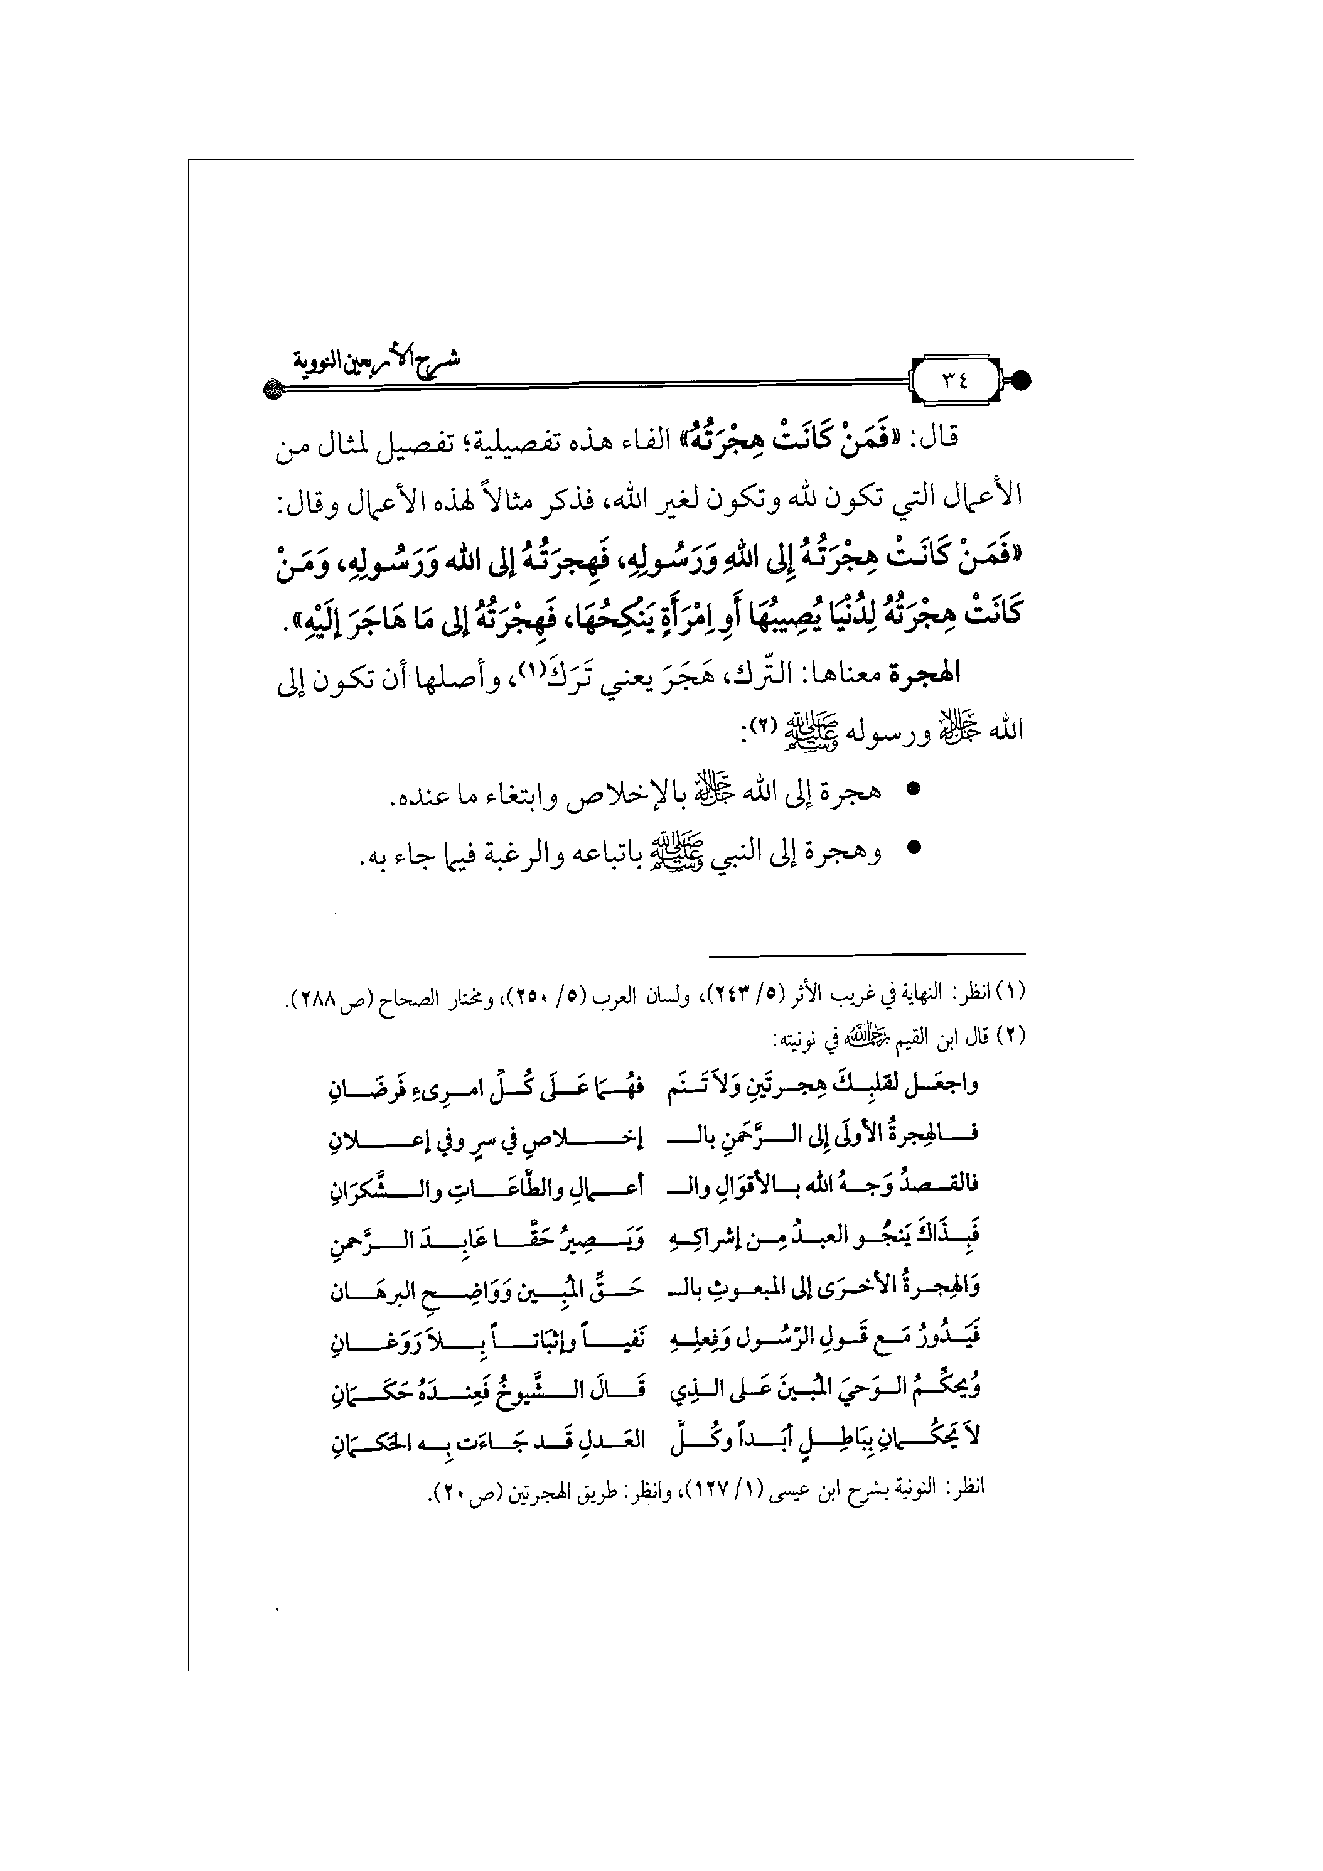 شرح الأربعين النووية
٣٤
قال: «فَمَنْ كَانَتْ هِجْرَتُهُ» الفاء هذه تفصيلية؛ تفصيل لمثال من
الأعمال التي تكون لله وتكون لغير الله، فذكر مثالاً لهذه الأعمال وقال:
«فَمَنْ كَانَتْ هِجْرَتُهُ إِلى اللهِ وَرَسُولِهِ، فَهِجرَتُهُ إلى الله وَرَسُولِهِ، وَمَنْ
كَانَتْ هِجْرَتُهُ لِدُنْيَا يُصِيبُهَا أَوِ امْرَأَةٍ يَنْكِحُهَا، فَهِجْرَتُهُ إلى مَا هَاجَرَ إلَيْهِ».
الهجرة معناها: التّرك، هَجَرَ يعني تَرَكَ(١)، وأصلها أن تكون إلى
الله ﷻ ورسوله ﷺ (٢):
● هجرة إلى الله ﷻ بالإخلاص وابتغاء ما عنده.
● وهجرة إلى النبي ﷺ باتباعه والرغبة فيما جاء به.
(١) انظر: النهاية في غريب الأثر (٥/ ٢٤٣)، ولسان العرب (٥/ ٢٥٠)، ومختار الصحاح (ص٢٨٨).
(٢) قال ابن القيم رحمه الله في نونيته:
واجعَل لقلبِكَ هِجرتَينِ وَلاَ تَنَم فهُمَا عَلَى كُلِّ امرِىءٍ فَرضَانِ
فالهِجرةُ الأولَى إِلى الرَّحَمنِ بالـ إخلاصِ في سرٍ وفي إعلانِ
فالقصدُ وَجهُ الله بالأقوَالِ والـ أعمالِ والطَّاعَاتِ والشُّكرَانِ
فَبِذَاكَ يَنجُو العبدُ مِن إشراكِهِ وَيَصِيرُ حَقًّا عَابِدَ الرَّحمنِ
وَالهِجرةُ الأخرَى إلى المبعوثِ بالـ حَقِّ المُبِينِ وَوَاضِحِ البرهَانِ
فَيَدُورُ مَع قَولِ الرّسُولِ وَفِعلِهِ نَفياً وإثبَاتاً بِلاَ رَوَغانِ
وُيحَكِّمُ الوَحيَ المُبينَ عَلى الذِي قَالَ الشُّيوخُ فَعِندَهُ حَكَمَانِ
لاَ يَحكُمانِ بِبَاطِلٍ أبَداً وكُلُّ العَدلِ قَد جَاءَت بِه الحَكمَانِ
انظر: النونية بشرح ابن عيسى (١/ ١٢٧)، وانظر: طريق الهجرتين (ص٢٠).